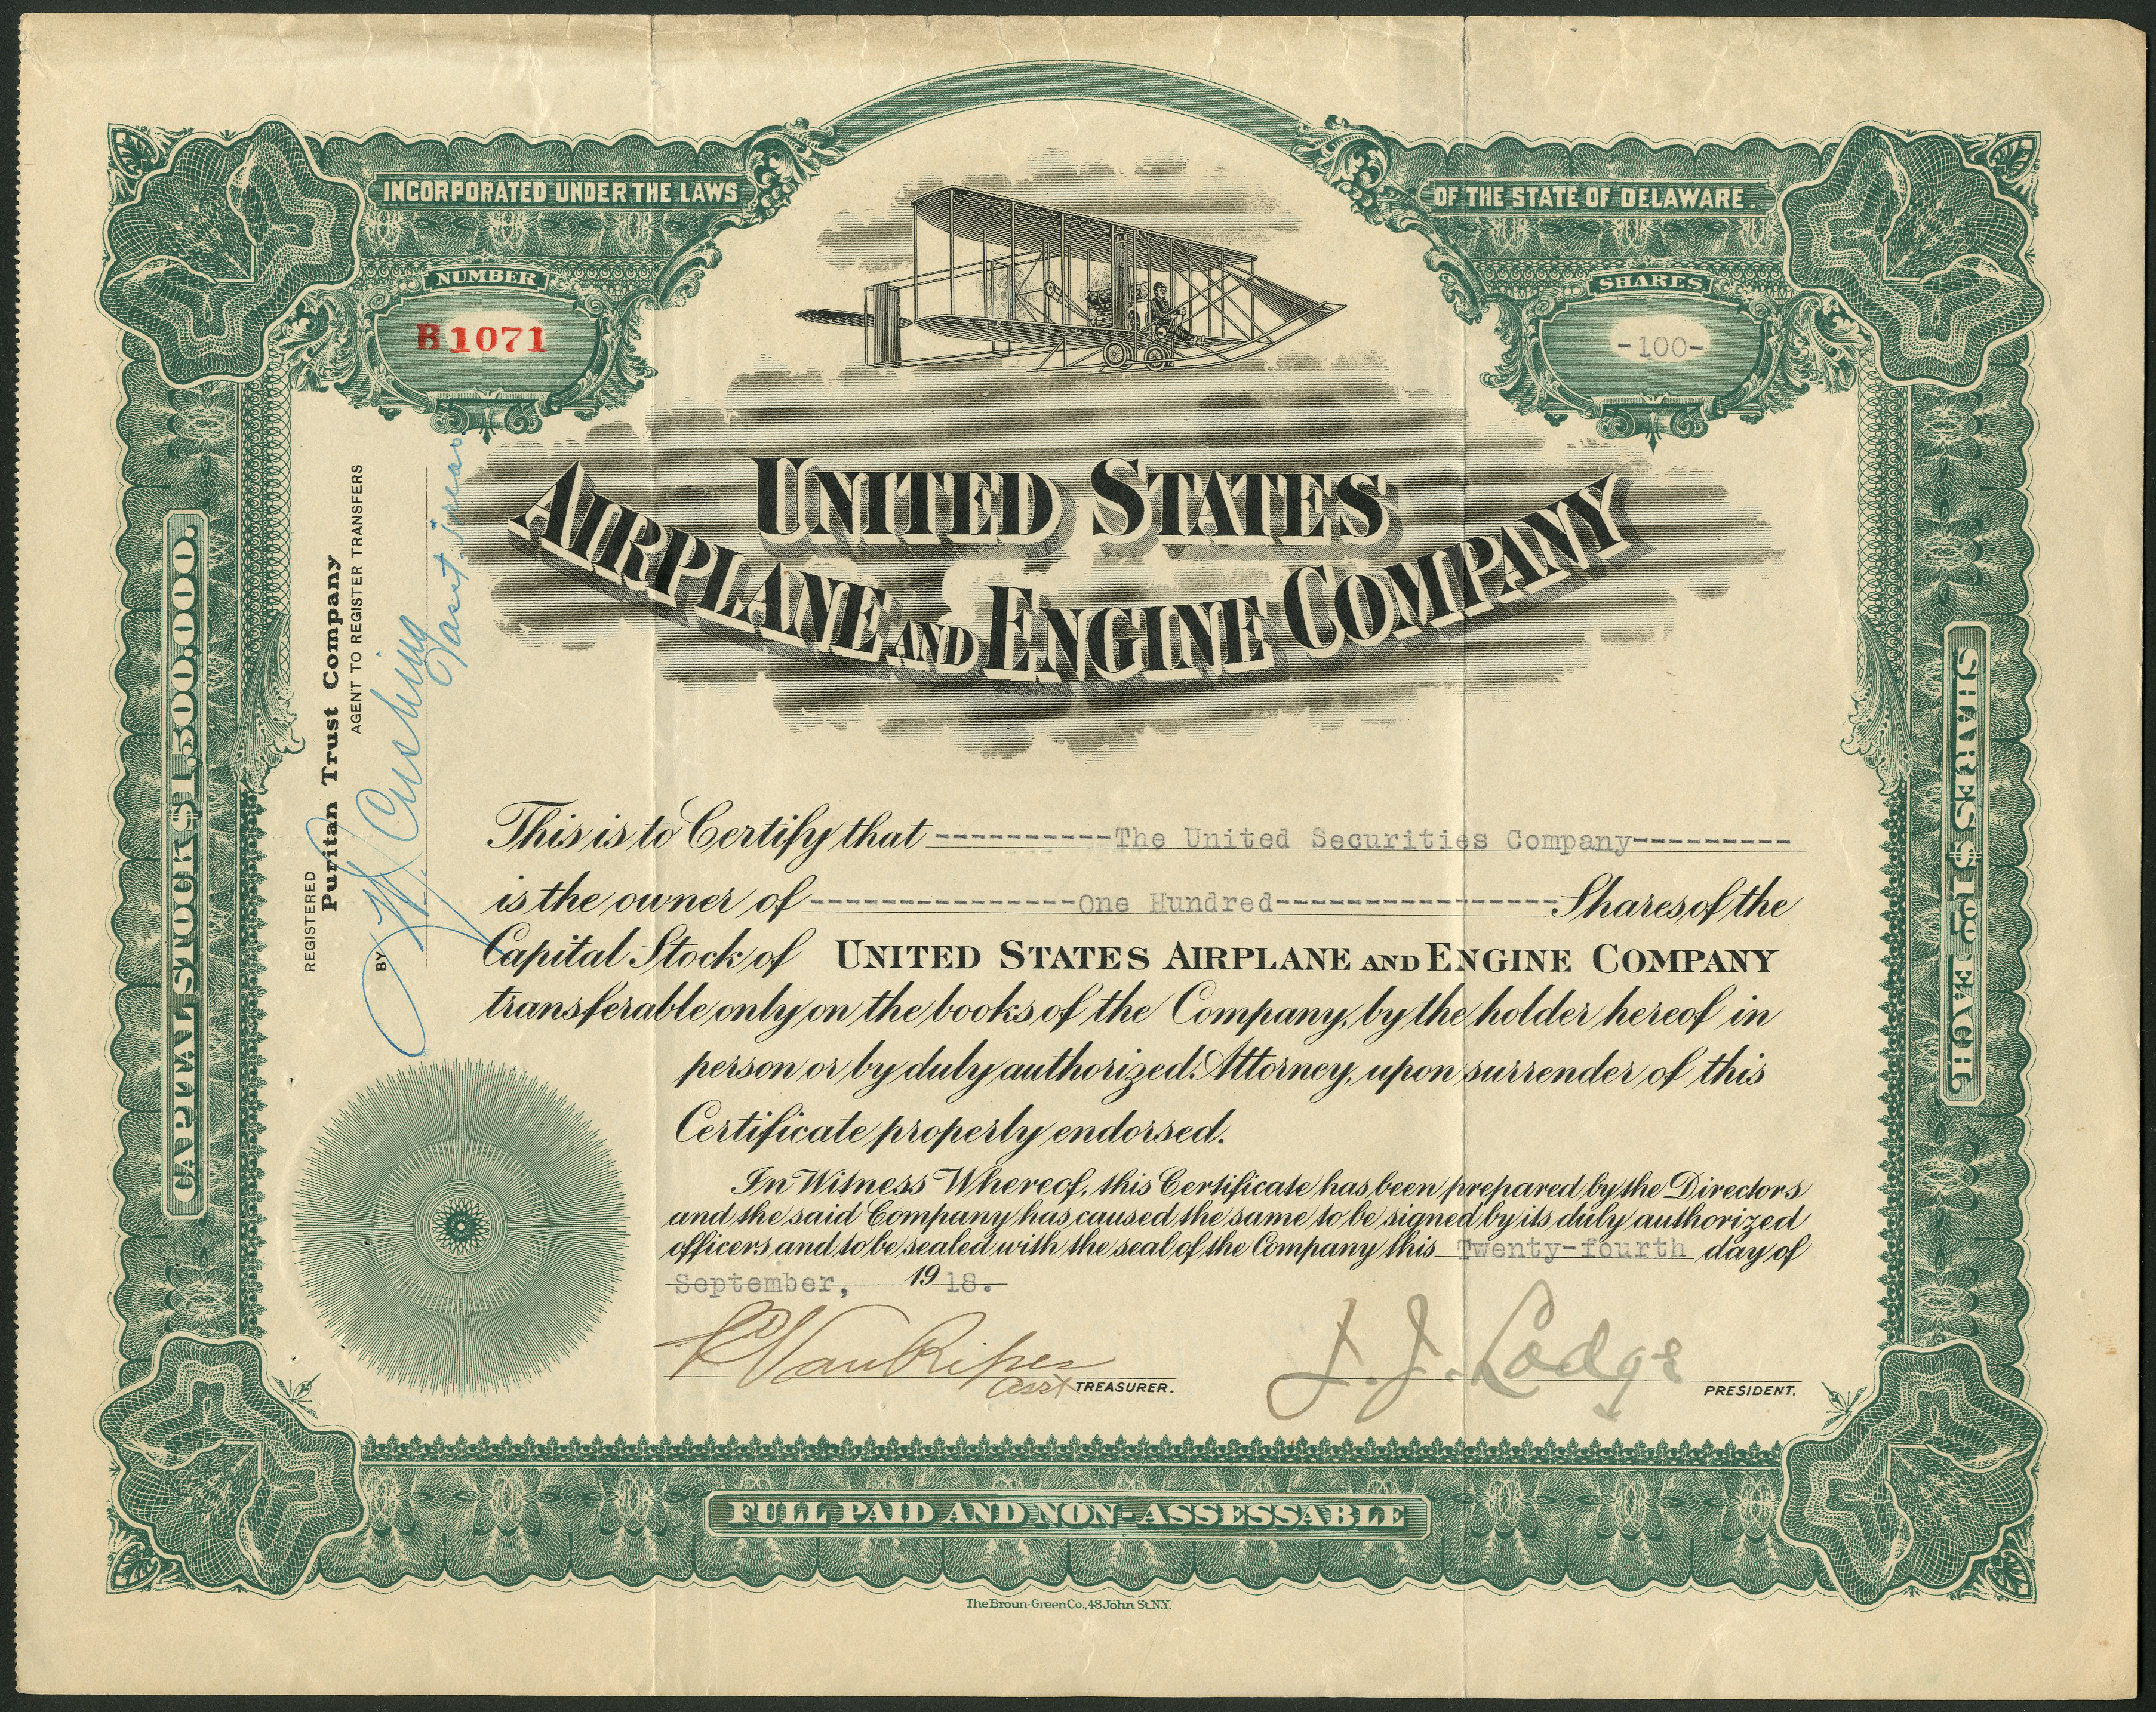 INCORPORATED UNDER THE LAWS
OF THE STATE OF DELAWARE.
NUMBER
B1071
SHARES
-100-
UNITED STATES
AIRPLANE AND ENGINE COMPANY
CAPITAL STOCK $1,500,000.
SHARES $10 EACH.
REGISTERED
Puritan Trust Company
AGENT TO REGISTER TRANSFERS
BY Cushing
Asst. Treas.
This is to Certify that ----------The United Securities Company---------
is the owner of ---------------One Hundred---------------- Shares of the
Capital Stock of UNITED STATES AIRPLANE AND ENGINE COMPANY
transferable only on the books of the Company, by the holder hereof in
person or by duly authorized Attorney, upon surrender of this
Certificate properly endorsed.
In Witness Whereof, this Certificate has been prepared by the Directors
and the said Company has caused the same to be signed by its duly authorized
officers and to be sealed with the seal of the Company this Twenty-fourth day of
September, 1918.
Van Riper
Asst TREASURER.
J. J. Lodge
PRESIDENT.
FULL PAID AND NON-ASSESSABLE
The Broun-Green Co., 48 John St. N.Y.